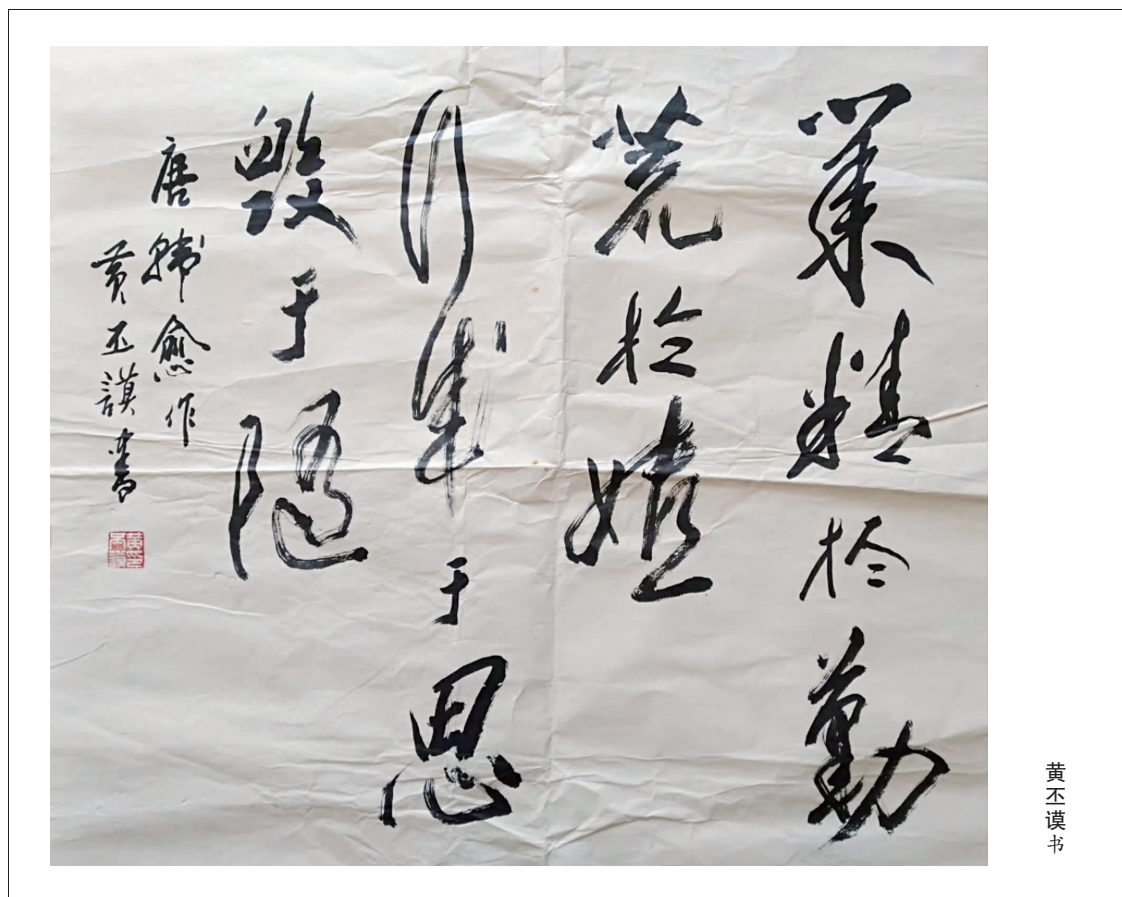 業精於勤
荒於嬉
行成于思
毀于隨
唐韓愈作
黄丕謨書
黄丕谟书